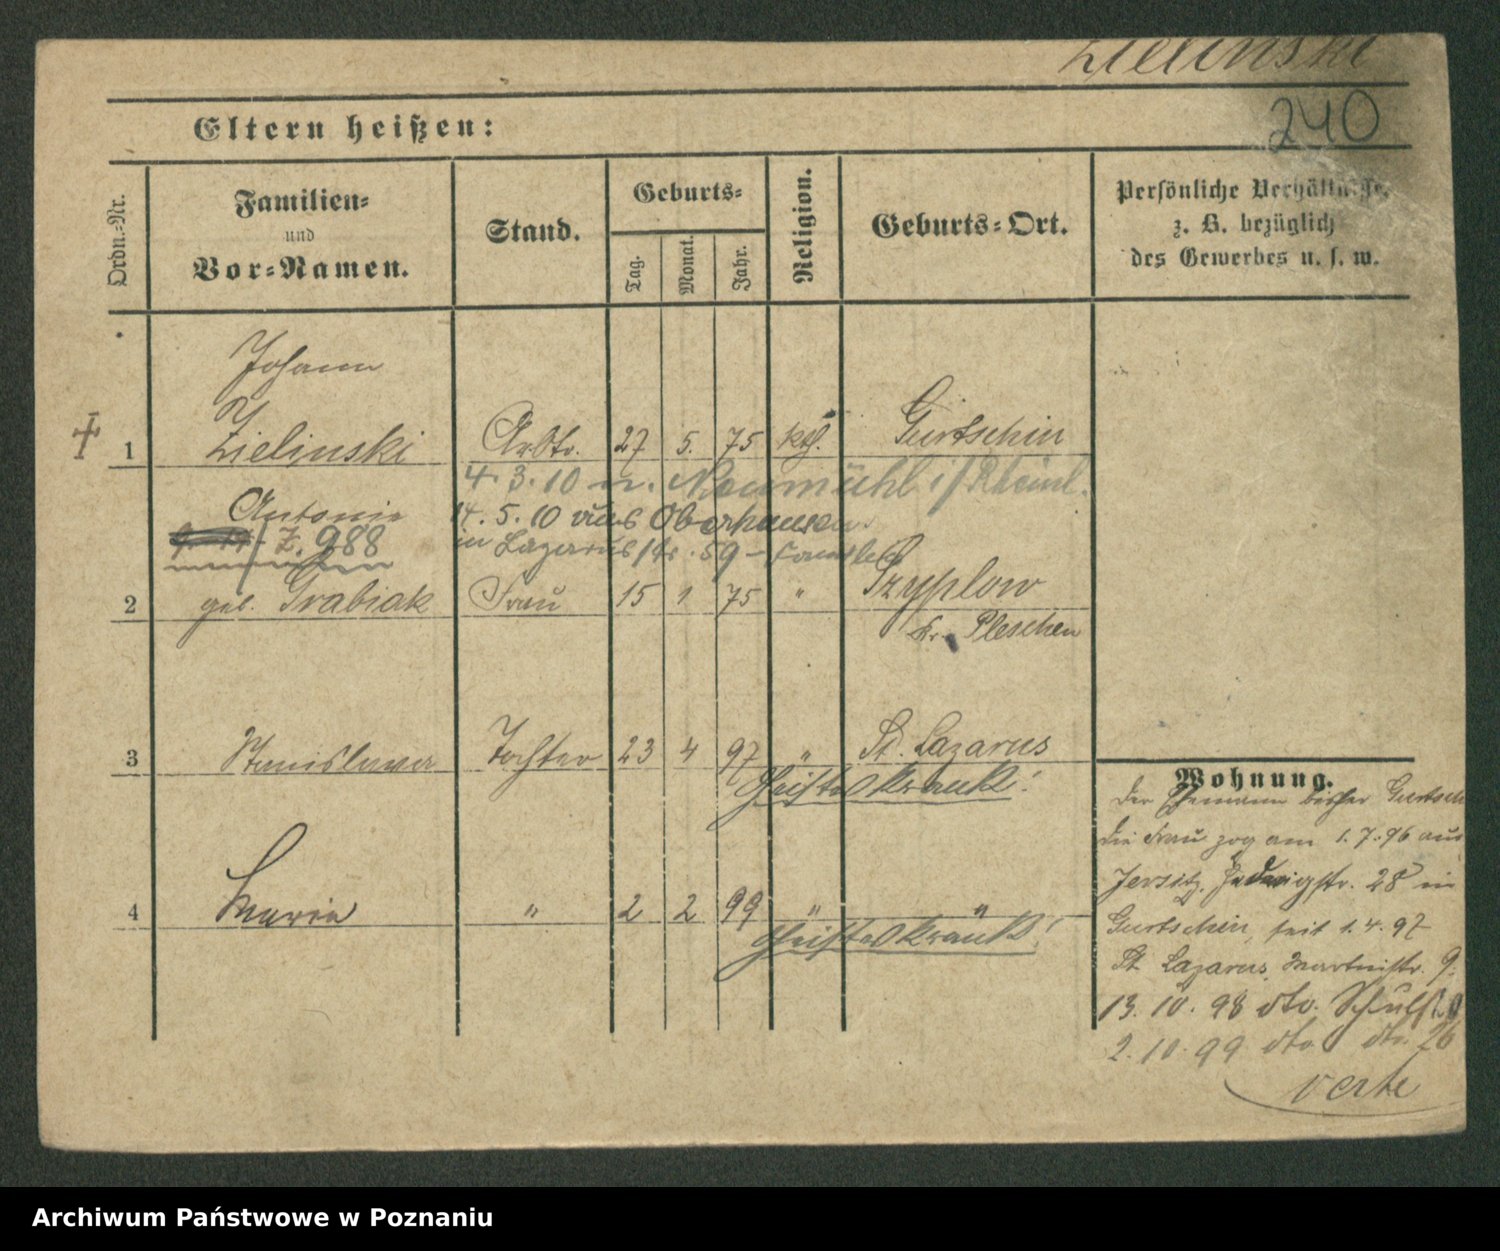 Zielinski
240
Eltern heißen:
Ordn.-Nr.
Familien-
und
Vor-Namen.
Stand.
Geburts-
Tag.
Monat.
Jahr.
Religion.
Geburts-Ort.
Persönliche Verhältnisse,
z. B. bezüglich
des Gewerbes u. s. w.
Johann
1 Zielinski Arbtr. 27 5. 75 kth. Gurtschin
4. 3. 10 n. Neumühl i/Rheinl.
Antonie
14. 5. 10 aus Oberhausen
Z. 988
in Lazarusstr. 59 -
2 geb. Grabiak Frau 15 1 75 "
Kr. Pleschen
3 Stanislawa Tochter 23 4 97 " St. Lazarus
Geisteskrank!
4 Maria " 2 2 99 " "
Geisteskrank!
Wohnung.
Der Ehemann bisher Gurtsch
die Frau zog am 1. 7. 96 aus
Jersitz, Hedwigstr. 28 in
Gurtschin, seit 1. 4. 97
St. Lazarus, 9.
13. 10. 98 dto. Schulstr.
2. 10. 99 dto. dto. 26
verte
Archiwum Państwowe w Poznaniu